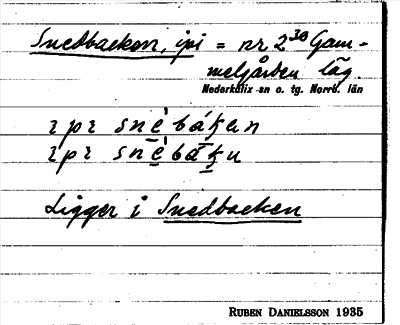 Snedbacken, ipi = nr 2³⁰ Gam-
melgården läg.
Nederkalix sn o. tg. Norrb. län
ɩpɩ snèbákan
ɩpɩ snèbáku
Ligger i Snedbacken
RUBEN DANIELSSON 1935